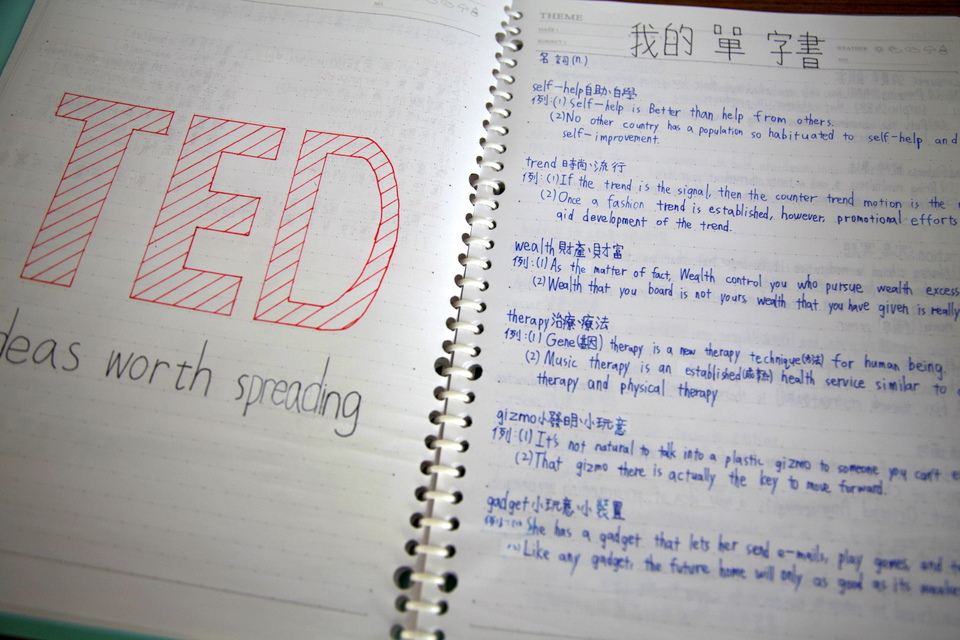 TED
deas worth spreading
THEME
我的單字書
名詞(n.)
self-help自助、自學
例:(1) Self-help is Better than help from others.
(2)No other country has a population so habituated to self-help and
self-improvement.
trend 時尚、流行
例:(1)If the trend is the signal, then the counter trend motion is the
(2)Once a fashion trend is established, however, promotional efforts
aid development of the trend.
wealth 財產、財富
例:(1)As the matter of fact, Wealth control you who pursue wealth excess
(2)Wealth that you board is not yours wealth that you have given is really
therapy治療、療法
例:(1) Gene(基因) therapy is a new therapy technique(方法) for human being.
(2) Music therapy is an established health service similar to
therapy and physical therapy
gizmo小發明、小玩意
例:(1)It's not natural to talk into a plastic gizmo to someone you can't
(2)That gizmo there is actually the key to move forward.
gadget小玩意、小裝置
She has a gadget that lets her send e-mails, play games, and
Like any gadget, the future home will only as good as its